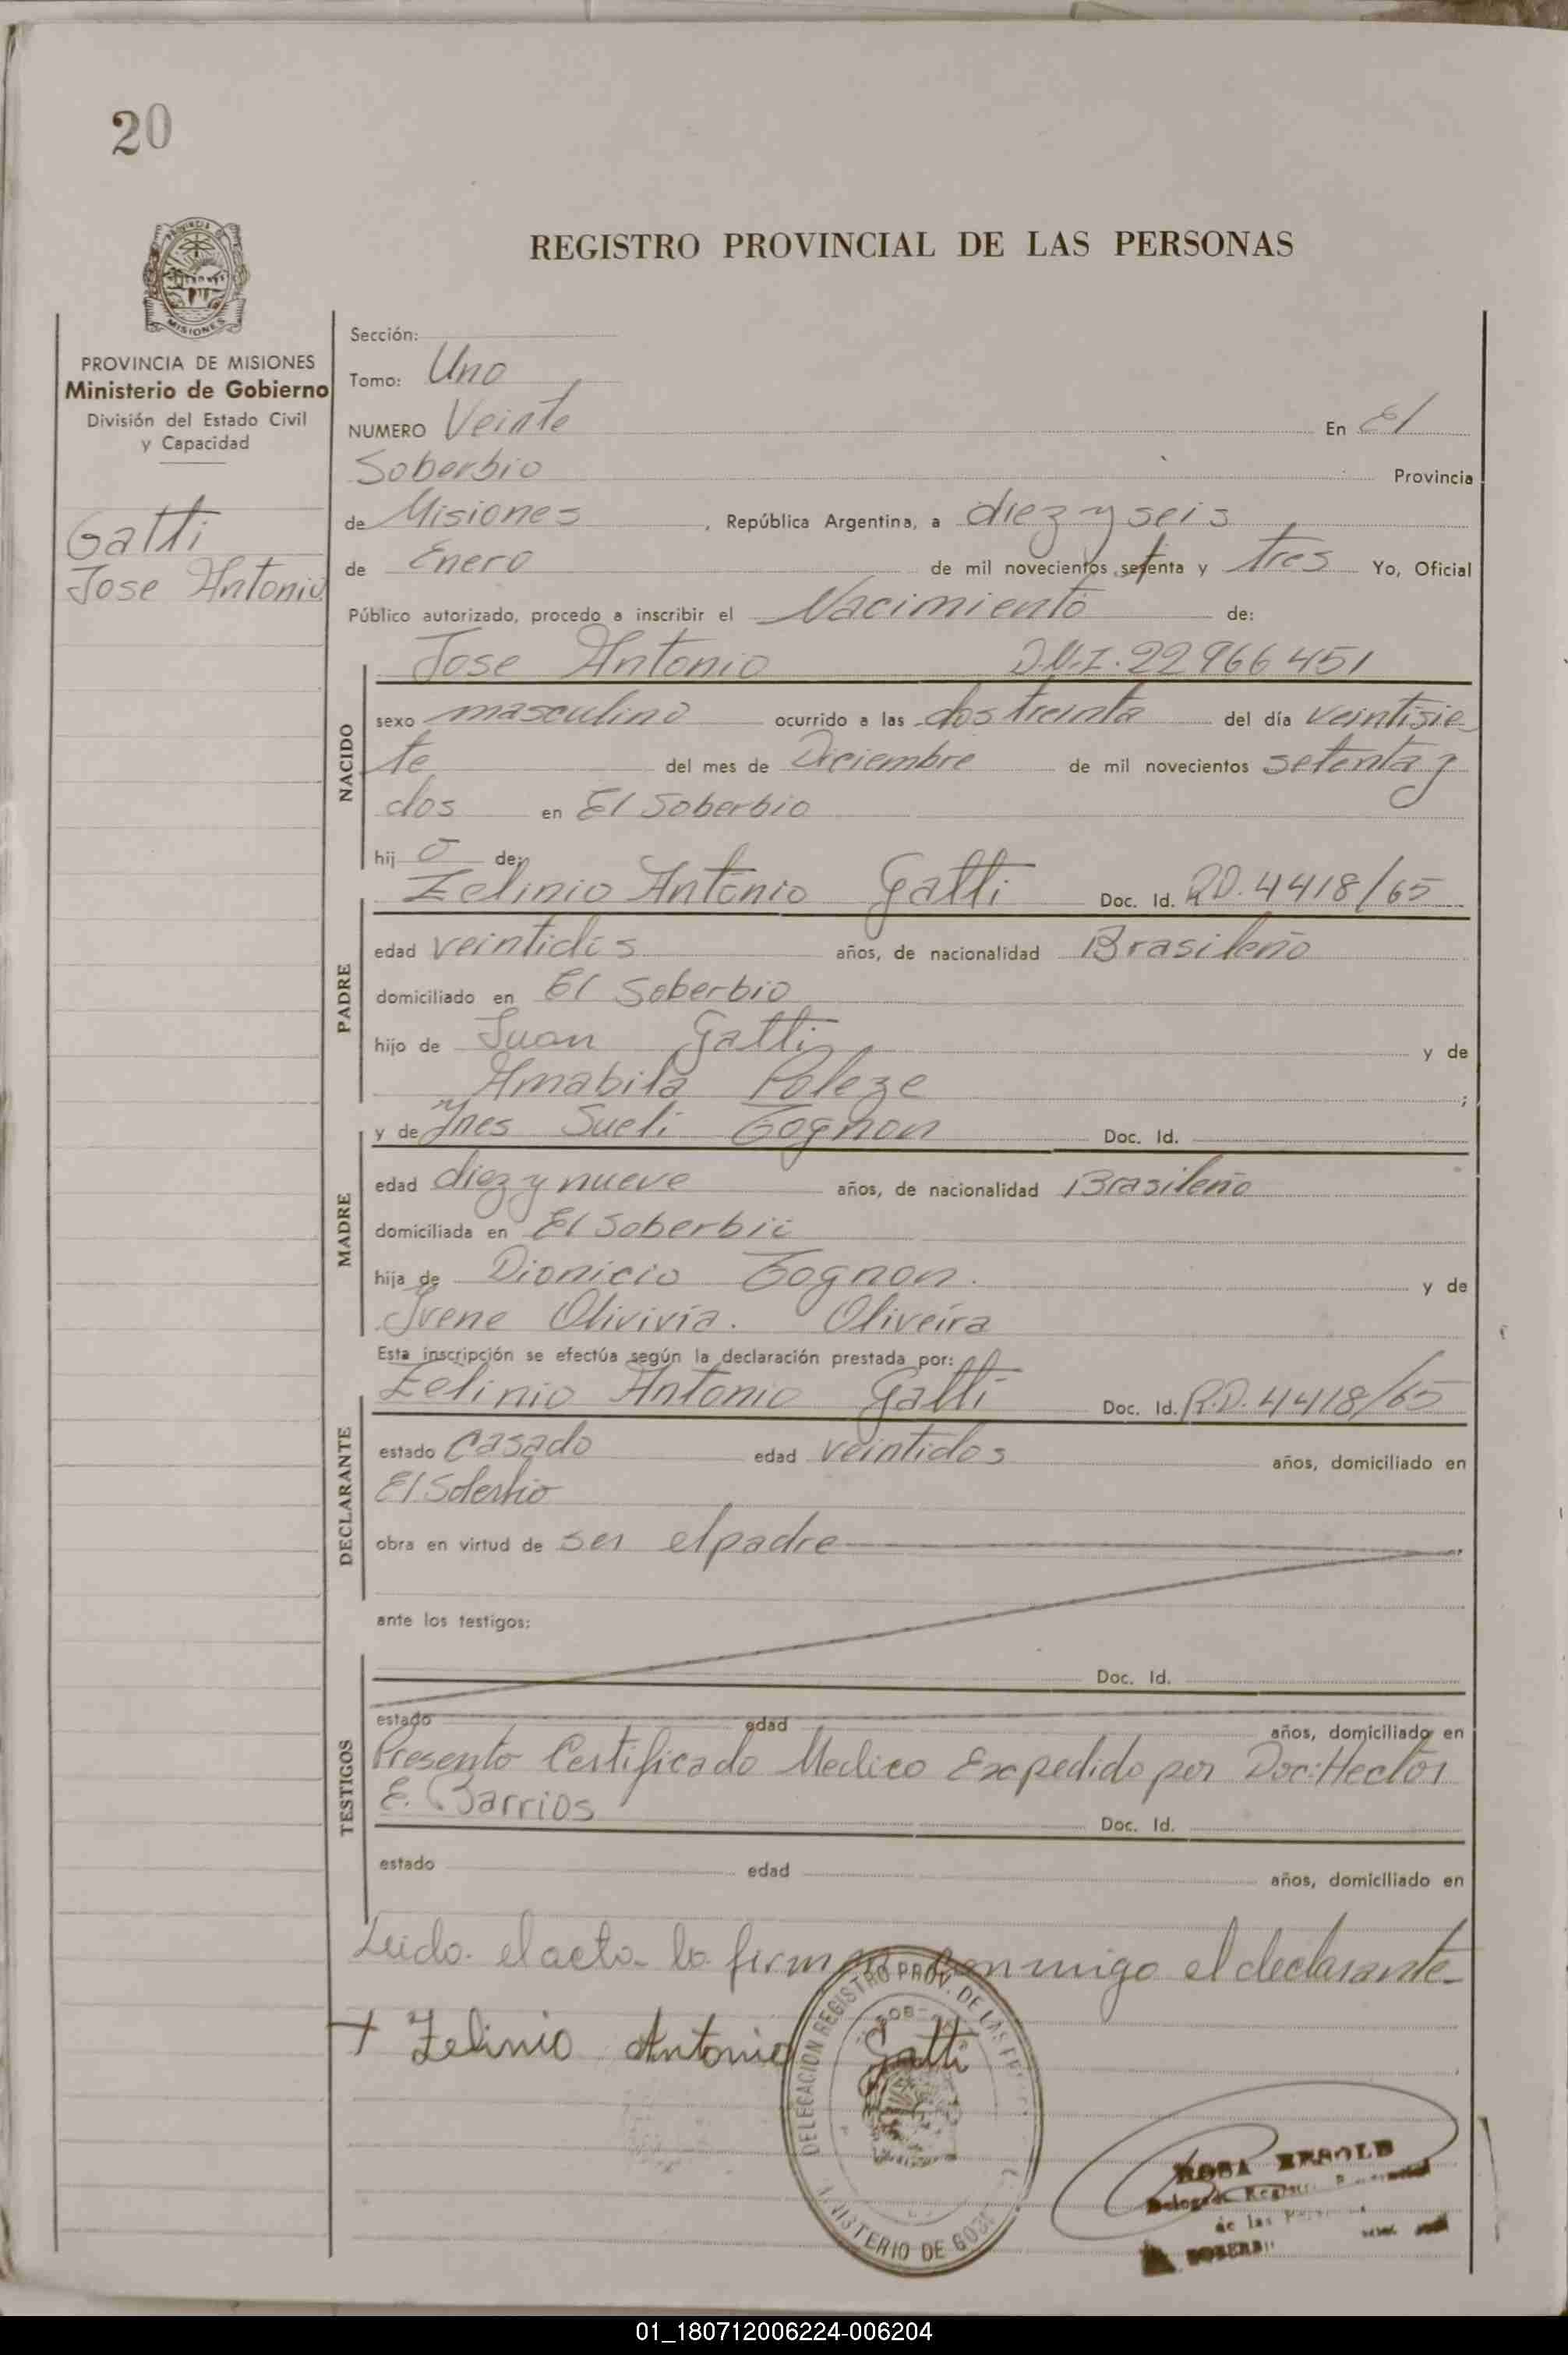 20
REGISTRO PROVINCIAL DE LAS PERSONAS
PROVINCIA DE MISIONES
Ministerio de Gobierno
División del Estado Civil
y Capacidad
Gatti
Jose Antonio
Sección:
Tomo: Uno
NUMERO Veinte En El
Soberbio Provincia
de Misiones, República Argentina, a diez y seis
de Enero de mil novecientos setenta y tres Yo, Oficial
Público autorizado, procedo a inscribir el Nacimiento de:
Jose Antonio D.N.I. 22966451
NACIDO
sexo masculino ocurrido a las dos treinta del día veintisie
te del mes de Diciembre de mil novecientos setenta y
dos en El Soberbio
hij o de:
Zelinio Antonio Gatti Doc. Id. R.D. 4418/65
PADRE
edad veintidos años, de nacionalidad Brasileño
domiciliado en El Soberbio
hijo de Juan Gatti y de
Amabila Poleze ;
y de Ynes Sueli Tognon Doc. Id.
MADRE
edad diez y nueve años, de nacionalidad Brasileño
domiciliada en El Soberbio
hija de Dionicio Tognon. y de
Irene Olivivia. Oliveira
Esta inscripción se efectúa según la declaración prestada por:
Zelinio Antonio Gatti Doc. Id. R.D. 4418/65
DECLARANTE
estado Casado edad veintidos años, domiciliado en
El Soberbio
obra en virtud de ser el padre
ante los testigos:
Doc. Id.
TESTIGOS
estado edad años, domiciliado en
Presento Certificado Medico Expedido por Doc: Hector
E. Barrios Doc. Id.
estado edad años, domiciliado en
Leida el acta la firma conmigo el declarante
+ Zelinio Antonio Gatti
DELEGACION REGISTRO PROV. DE LAS
MINISTERIO DE
ROSA
de las
01_180712006224-006204